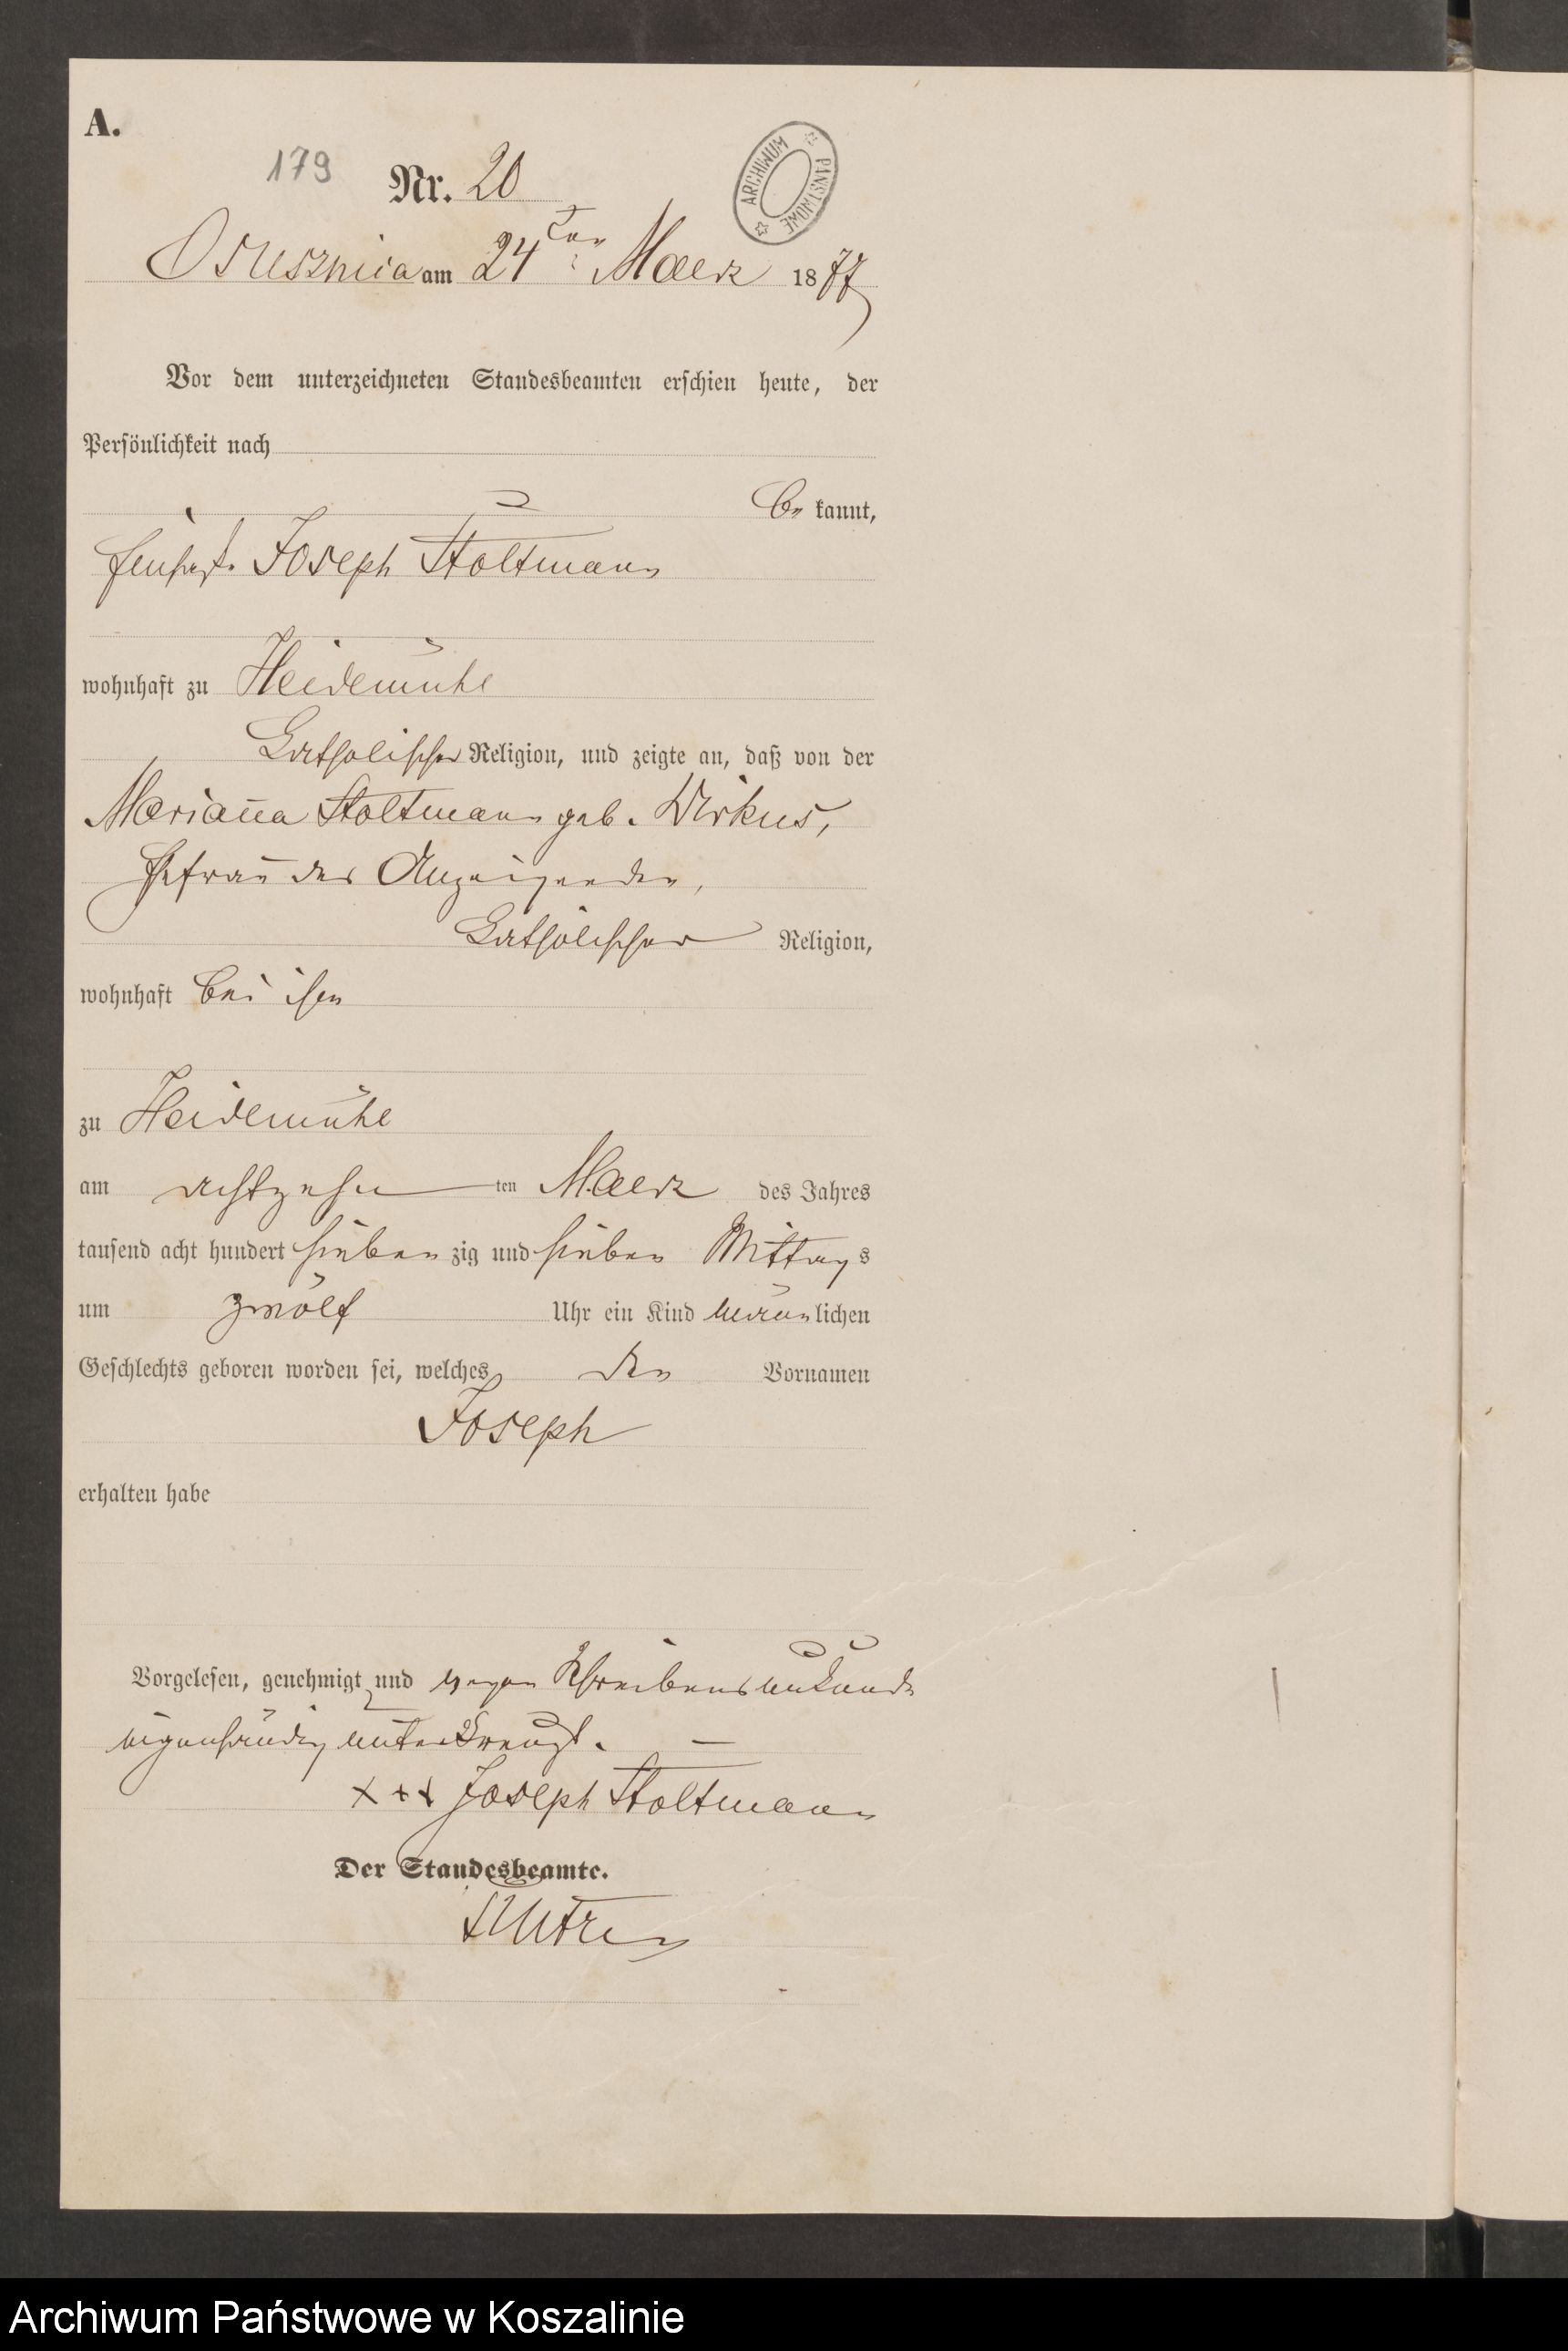 A.
179 Nr. 20
ARCHIWUM PAŃSTWOWE
Osusznica am 24ten Maerz 1877
Vor dem unterzeichneten Standesbeamten erschien heute, der
Persönlichkeit nach
be kannt,
Joseph Stoltmann
wohnhaft zu Heidemühl
Katholischer Religion, und zeigte an, daß von der
Marianna Stoltmann geb. Wirkus,
Ehefrau des Anzeigenden,
Katholischer Religion,
wohnhaft bei ihm
zu Heidemühl
am achtzehn ten Maerz des Jahres
tausend acht hundert sieben zig und sieben Mittag s
um zwölf Uhr ein Kind männ lichen
Geschlechts geboren worden sei, welches den Vornamen
Joseph
erhalten habe
Vorgelesen, genehmigt und wegen Schreibensunkunde
eigenhändig unterkreuzt.
+++ Joseph Stoltmann
Der Standesbeamte.
Archiwum Państwowe w Koszalinie